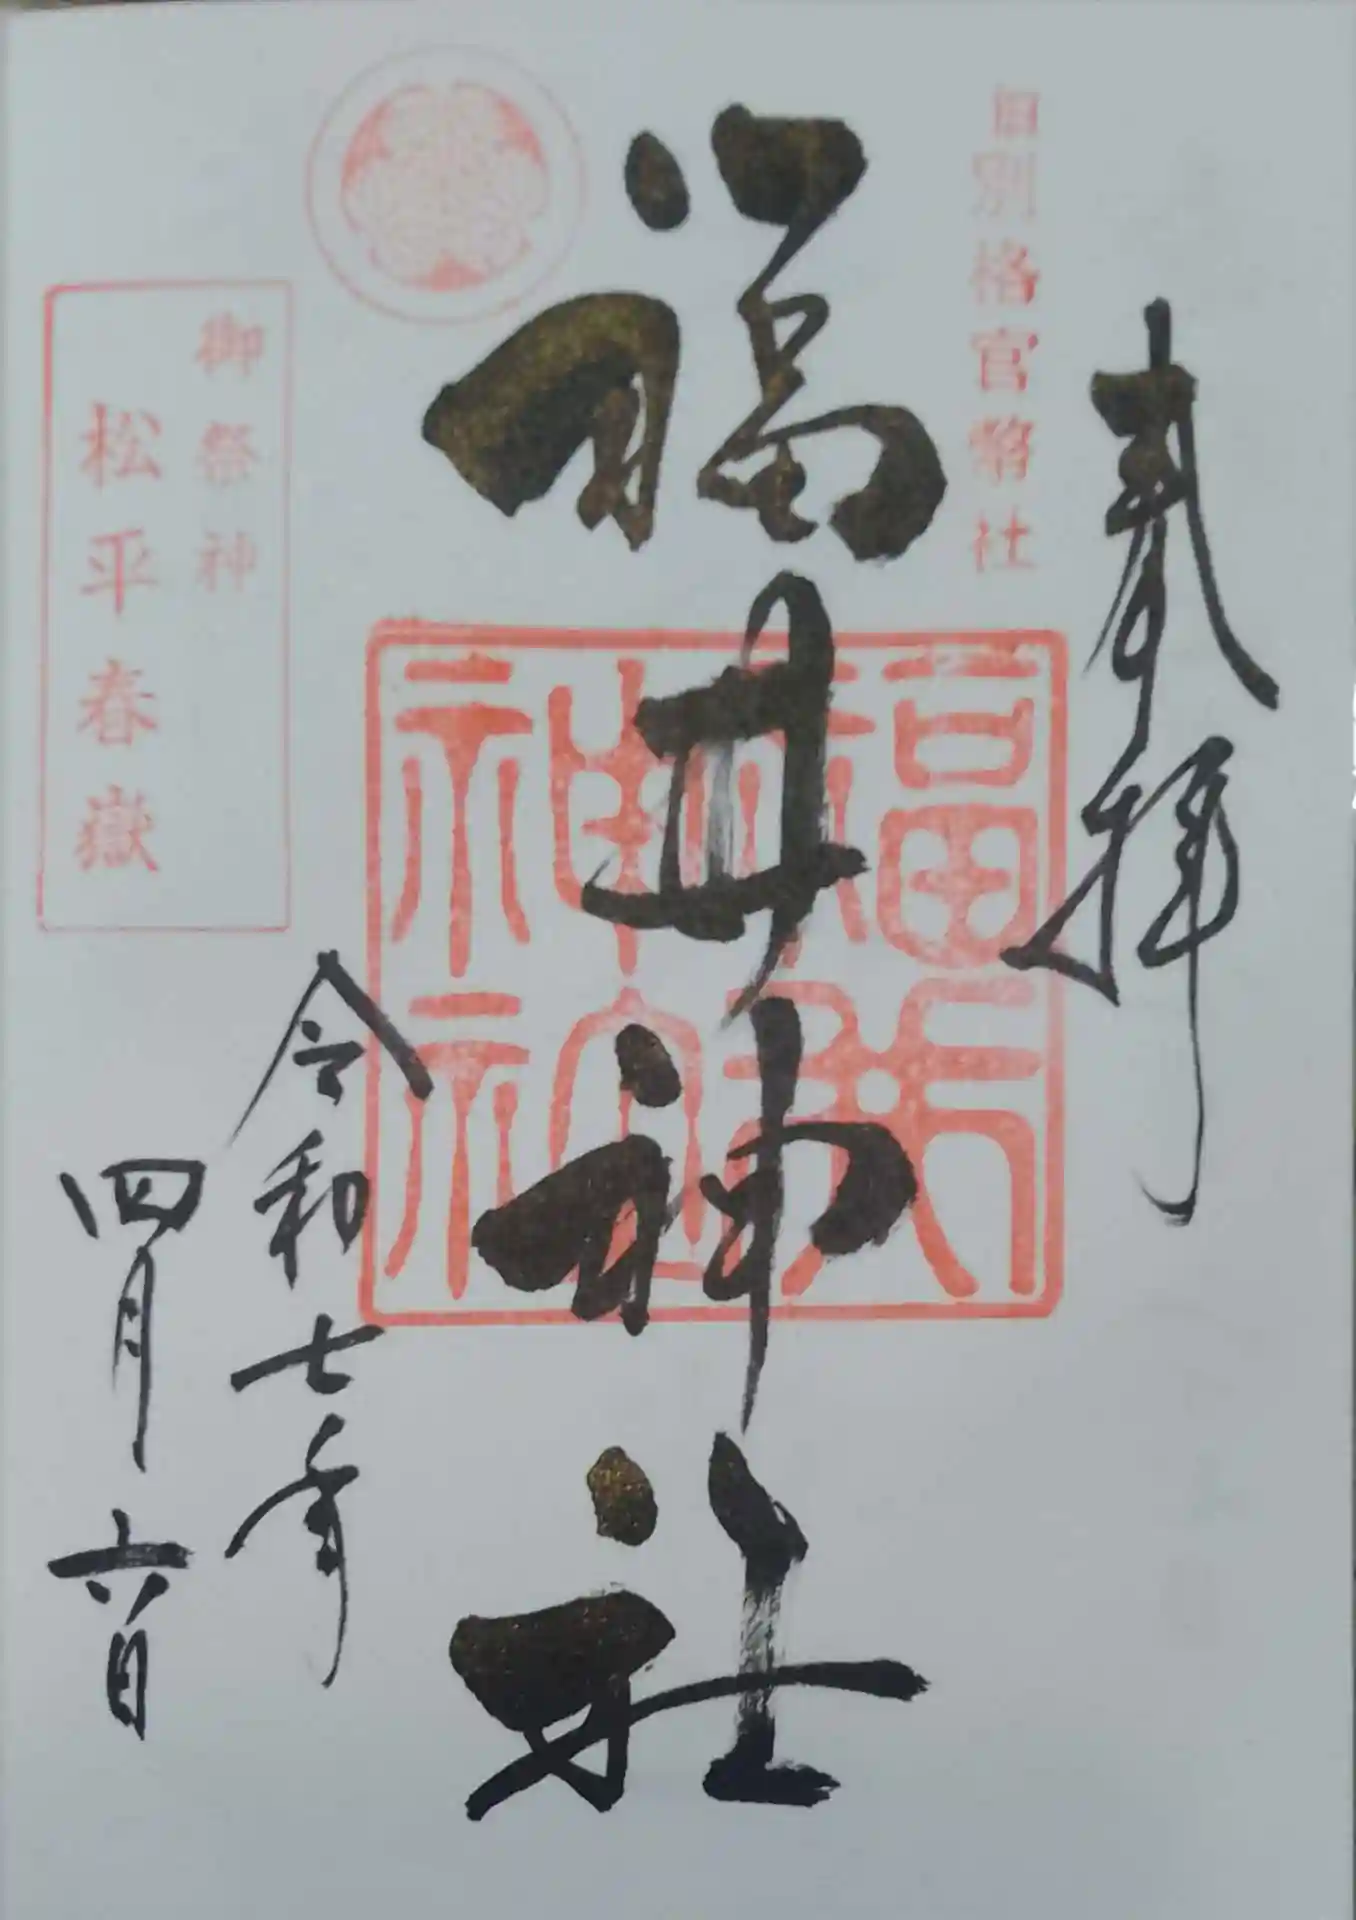 奉拝
旧別格官幣社
福井神社
福井神社
御祭神
松平春嶽
令和七年
四月六日